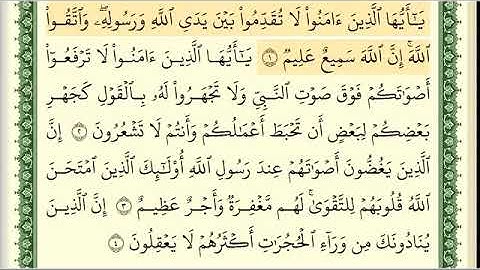 يَٰٓأَيُّهَا ٱلَّذِينَ ءَامَنُوا۟ لَا تُقَدِّمُوا۟ بَيْنَ يَدَىِ ٱللَّهِ وَرَسُولِهِۦ ۖ وَٱتَّقُوا۟
ٱللَّهَ ۚ إِنَّ ٱللَّهَ سَمِيعٌ عَلِيمٌ ١ يَٰٓأَيُّهَا ٱلَّذِينَ ءَامَنُوا۟ لَا تَرْفَعُوٓا۟
أَصْوَٰتَكُمْ فَوْقَ صَوْتِ ٱلنَّبِىِّ وَلَا تَجْهَرُوا۟ لَهُۥ بِٱلْقَوْلِ كَجَهْرِ
بَعْضِكُمْ لِبَعْضٍ أَن تَحْبَطَ أَعْمَٰلُكُمْ وَأَنتُمْ لَا تَشْعُرُونَ ٢ إِنَّ
ٱلَّذِينَ يَغُضُّونَ أَصْوَٰتَهُمْ عِندَ رَسُولِ ٱللَّهِ أُو۟لَٰٓئِكَ ٱلَّذِينَ ٱمْتَحَنَ
ٱللَّهُ قُلُوبَهُمْ لِلتَّقْوَىٰ ۚ لَهُم مَّغْفِرَةٌ وَأَجْرٌ عَظِيمٌ ٣ إِنَّ ٱلَّذِينَ
يُنَادُونَكَ مِن وَرَآءِ ٱلْحُجُرَٰتِ أَكْثَرُهُمْ لَا يَعْقِلُونَ ٤